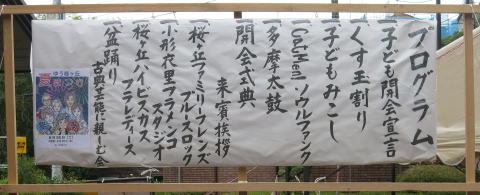 プログラム
一子ども開会宣言
一くす玉割り
一子どもみこし
一CostMenソウルファンク
一多摩太鼓
一開会式典
来賓挨拶
一桜ヶ丘ファミリーフレンズ
ブルースロック
一小形衣里フラメンコ
スタジオ
一桜ヶ丘ハイビスカス
フラレディース
一盆踊り
古典芸能に親しむ会
ゆう桜ヶ丘